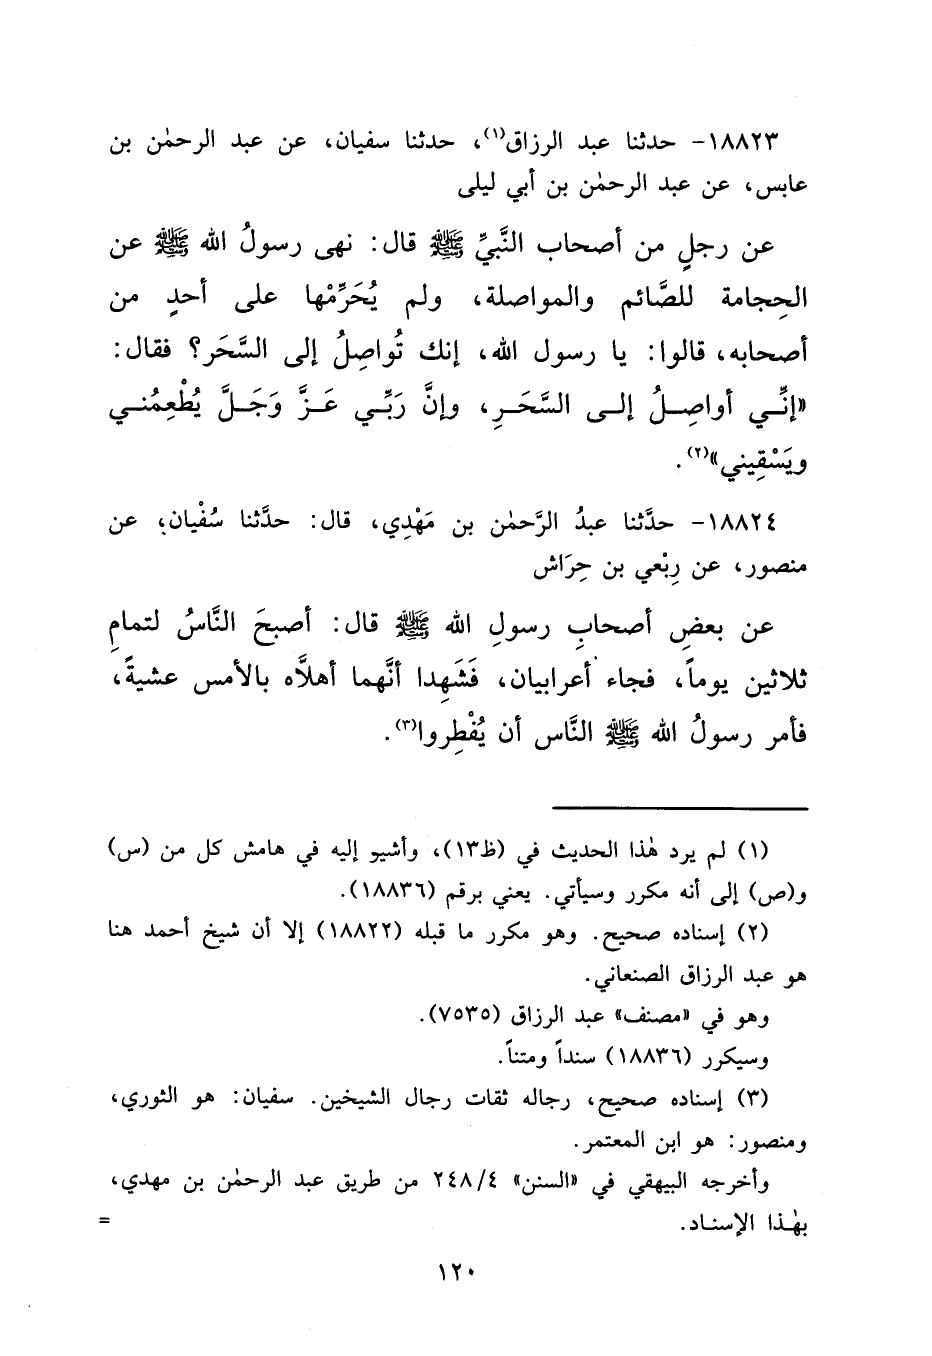 ١٨٨٢٣- حدثنا عبد الرزاق(١)، حدثنا سفيان، عن عبد الرحمٰن بن
عابس، عن عبد الرحمٰن بن أبي ليلى
عن رجلٍ من أصحاب النَّبيِّ ﷺ قال: نهى رسولُ الله ﷺ عن
الحِجامة للصَّائم والمواصلة، ولم يُحَرِّمْها على أحدٍ من
أصحابه، قالوا: يا رسول الله، إنك تُواصِلُ إلى السَّحَر؟ فقال:
«إنِّي أواصِلُ إلى السَّحَرِ، وإنَّ رَبِّي عَزَّ وَجَلَّ يُطْعِمُني
ويَسْقِيني»(٢).
١٨٨٢٤- حدَّثنا عبدُ الرَّحمٰن بن مَهْدِي، قال: حدَّثنا سُفْيان، عن
منصور، عن رِبْعي بن حِرَاش
عن بعضِ أصحابِ رسولِ الله ﷺ قال: أصبحَ النَّاسُ لتمامِ
ثلاثين يوماً، فجاء أعرابيان، فَشَهِدا أنَّهما أهلاَّه بالأمس عشيةً،
فأمر رسولُ الله ﷺ النَّاس أن يُفْطِروا(٣).
(١) لم يرد هٰذا الحديث في (ظ١٣)، وأشيو إليه في هامش كل من (س)
و(ص) إلى أنه مكرر وسيأتي. يعني برقم (١٨٨٣٦).
(٢) إسناده صحيح. وهو مكرر ما قبله (١٨٨٢٢) إلا أن شيخ أحمد هنا
هو عبد الرزاق الصنعاني.
وهو في «مصنف» عبد الرزاق (٧٥٣٥).
وسيكرر (١٨٨٣٦) سنداً ومتناً.
(٣) إسناده صحيح، رجاله ثقات رجال الشيخين. سفيان: هو الثوري،
ومنصور: هو ابن المعتمر.
وأخرجه البيهقي في «السنن» ٢٤٨/٤ من طريق عبد الرحمٰن بن مهدي،
بهٰذا الإسناد. =
١٢٠